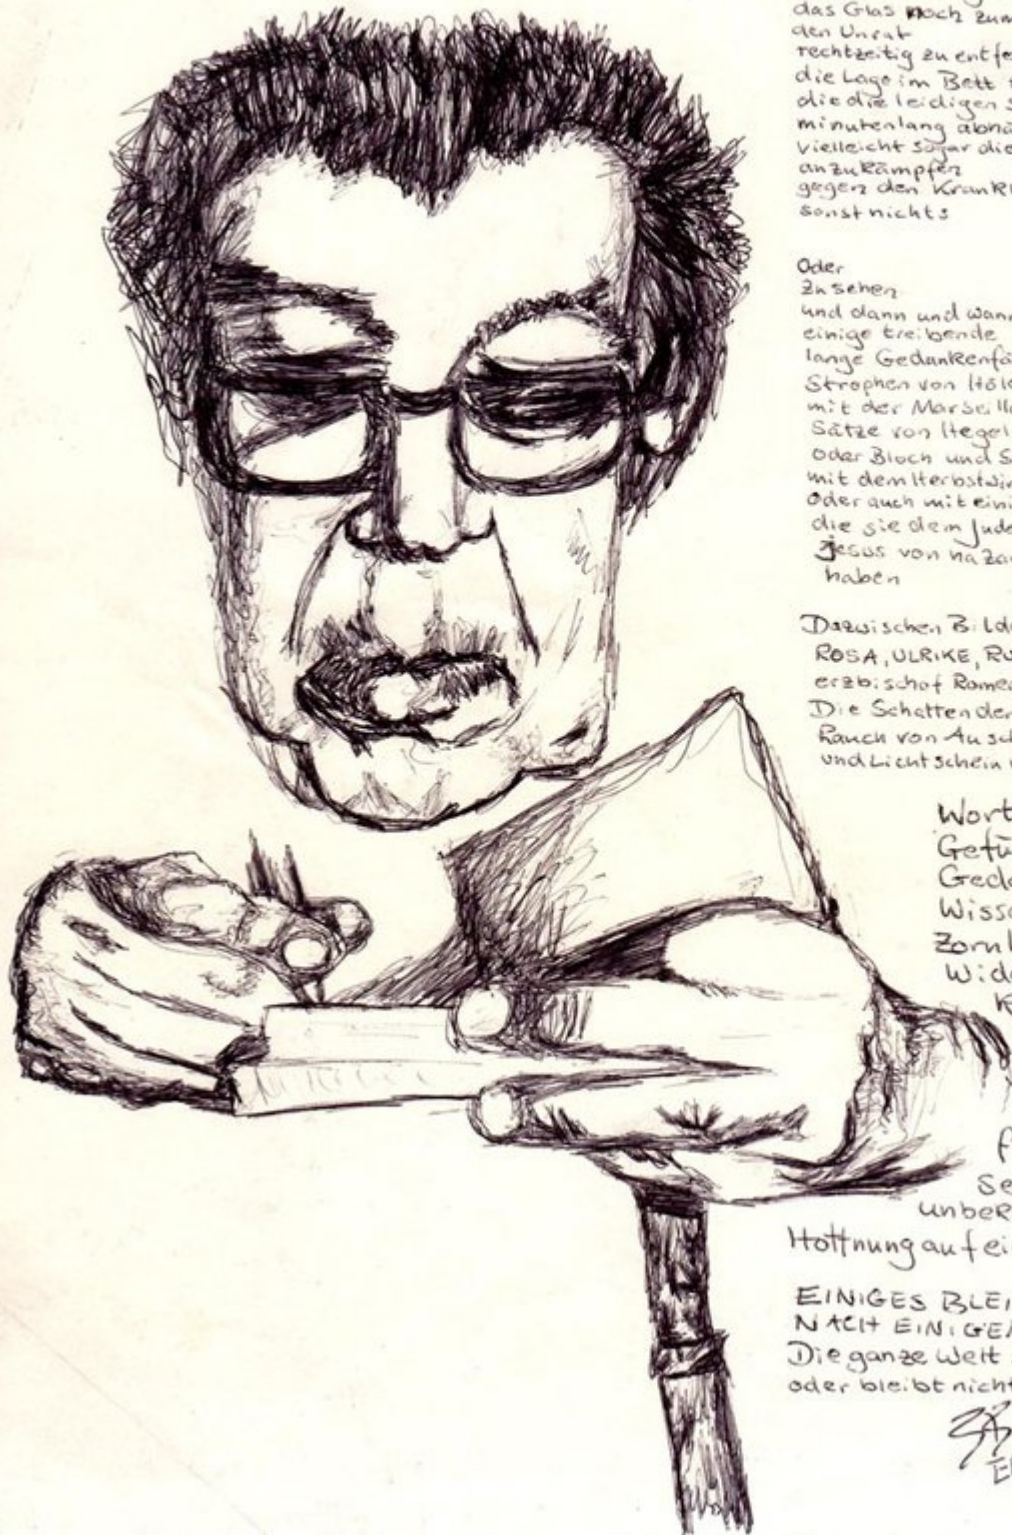 das Glas noch zum
den Unrat
rechtzeitig zu entfe
die Lage im Bett
die die leidigen s
minutenlang abnü
vielleicht sogar die
anzukämpfen
gegen den Krankh
sonst nichts
Oder
zu sehen
und dann und wann
einige treibende
lange Gedankenfä
Strophen von Höld
mit der Marseilla
Sätze von Hegel
oder Bloch und S
mit dem Herbstwin
oder auch mit eini
die sie dem Jude
Jesus von nazar
haben
Dazwischen Bilde
ROSA, ULRIKE, RU
erzbischof Romer
Die Schatten der
Rauch von Ausch
und Lichtschein
Wort
Gefü
Geda
Wiss
Zorn
Wide
K
f
Se
unbek
Hoffnung auf ei
EINIGES BLEI
NACH EINIGEN
Die ganze Welt
oder bleibt nicht